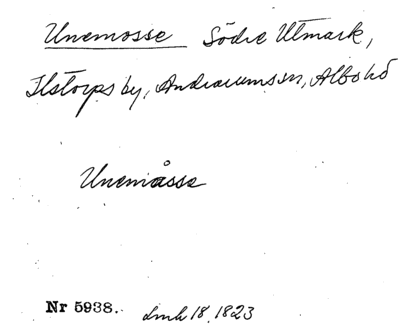 Unemosse Södre Utmark,
Ilstorps by, Andrarums sn, Albo hd
Unemåsse
Nr 5938. Lmk 18, 1823